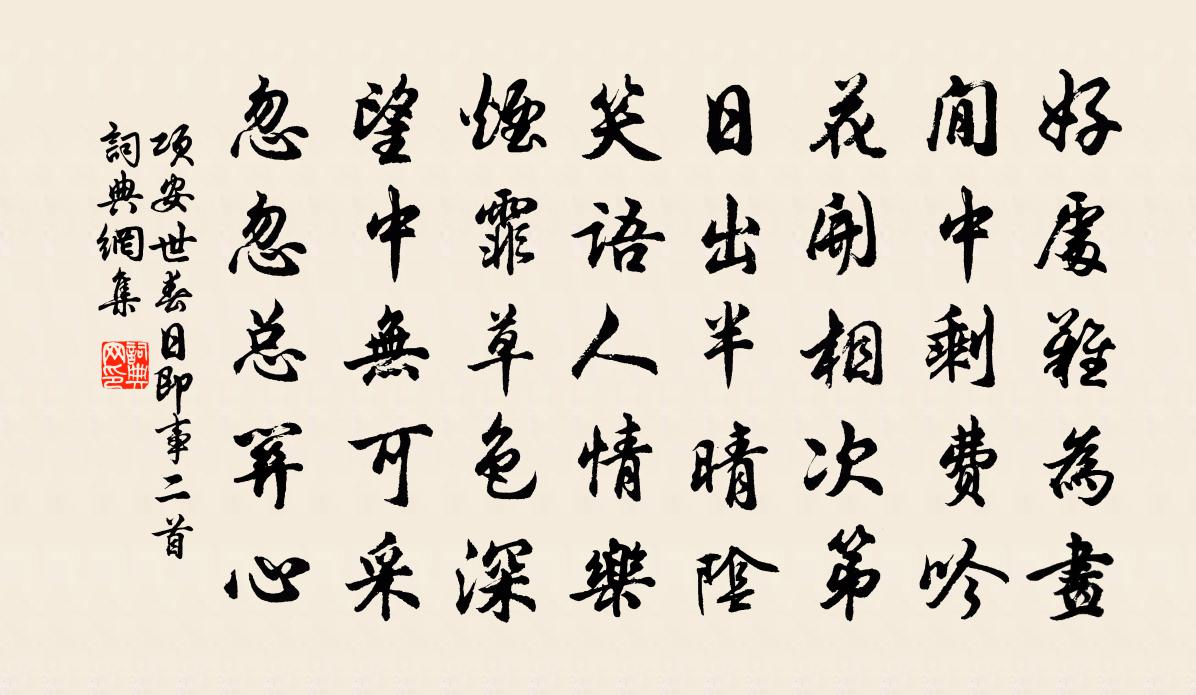 好處難為畫
閒中剩費吟
花開相次第
日出半晴陰
笑語人情樂
煙霏草色深
望中無可采
忽忽总關心
項安世春日即事二首
詞典網集
詞典网印